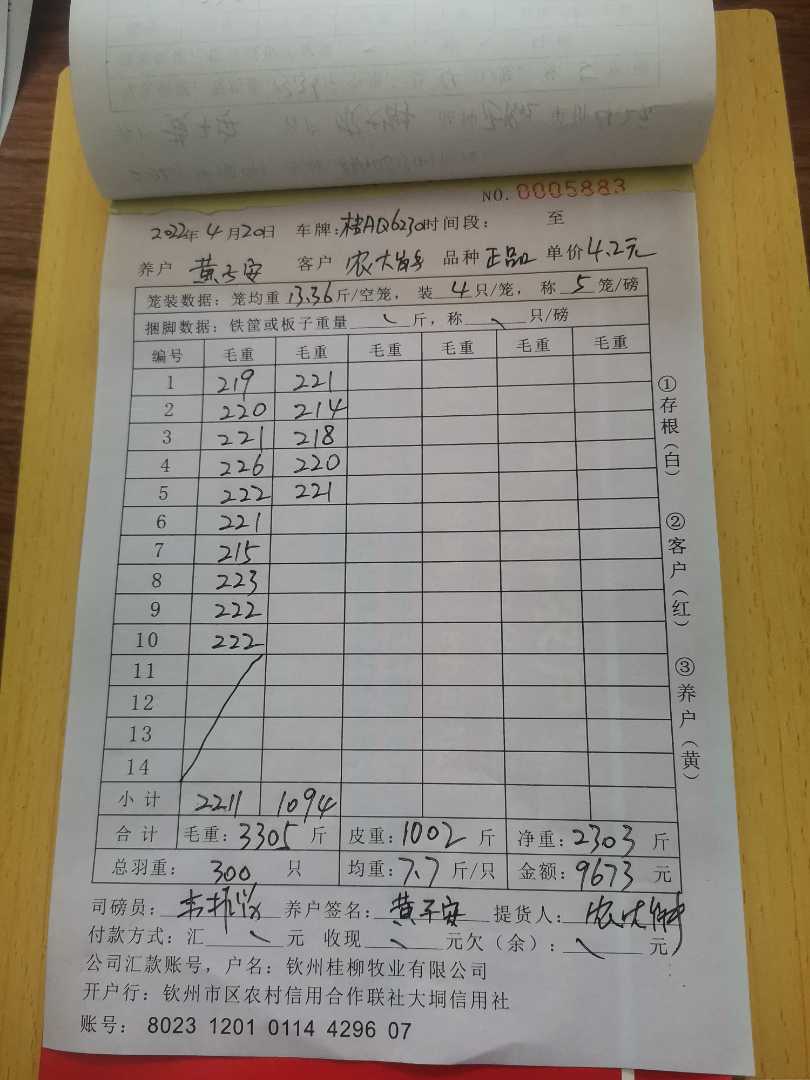 NO. 0005883
2022年 4月20日 车牌:桂AQ6230时间段: 至
养户 黄子安 客户 农大 品种 正品 单价4.2元
笼装数据: 笼均重 13.36 斤/空笼, 装 4 只/笼, 称 5 笼/磅
捆脚数据: 铁筐或板子重量 \ 斤, 称 \ 只/磅
编号 毛重 毛重 毛重 毛重 毛重 毛重
1 219 221
2 220 214
3 221 218
4 226 220
5 222 221
6 221
7 215
8 223
9 222
10 222
11
12
13
14
小计 2211 1094
合计 毛重: 3305 斤 皮重: 1002 斤 净重: 2303 斤
总羽重: 300 只 均重: 7.7 斤/只 金额: 9673 元
司磅员: 养户签名: 黄子安 提货人: 农大
付款方式: 汇 \ 元 收现 \ 元欠(余): \ 元
公司汇款账号, 户名: 钦州桂柳牧业有限公司
开户行: 钦州市区农村信用合作联社大垌信用社
账号: 8023 1201 0114 4296 07
①存根(白)
②客户(红)
③养户(黄)